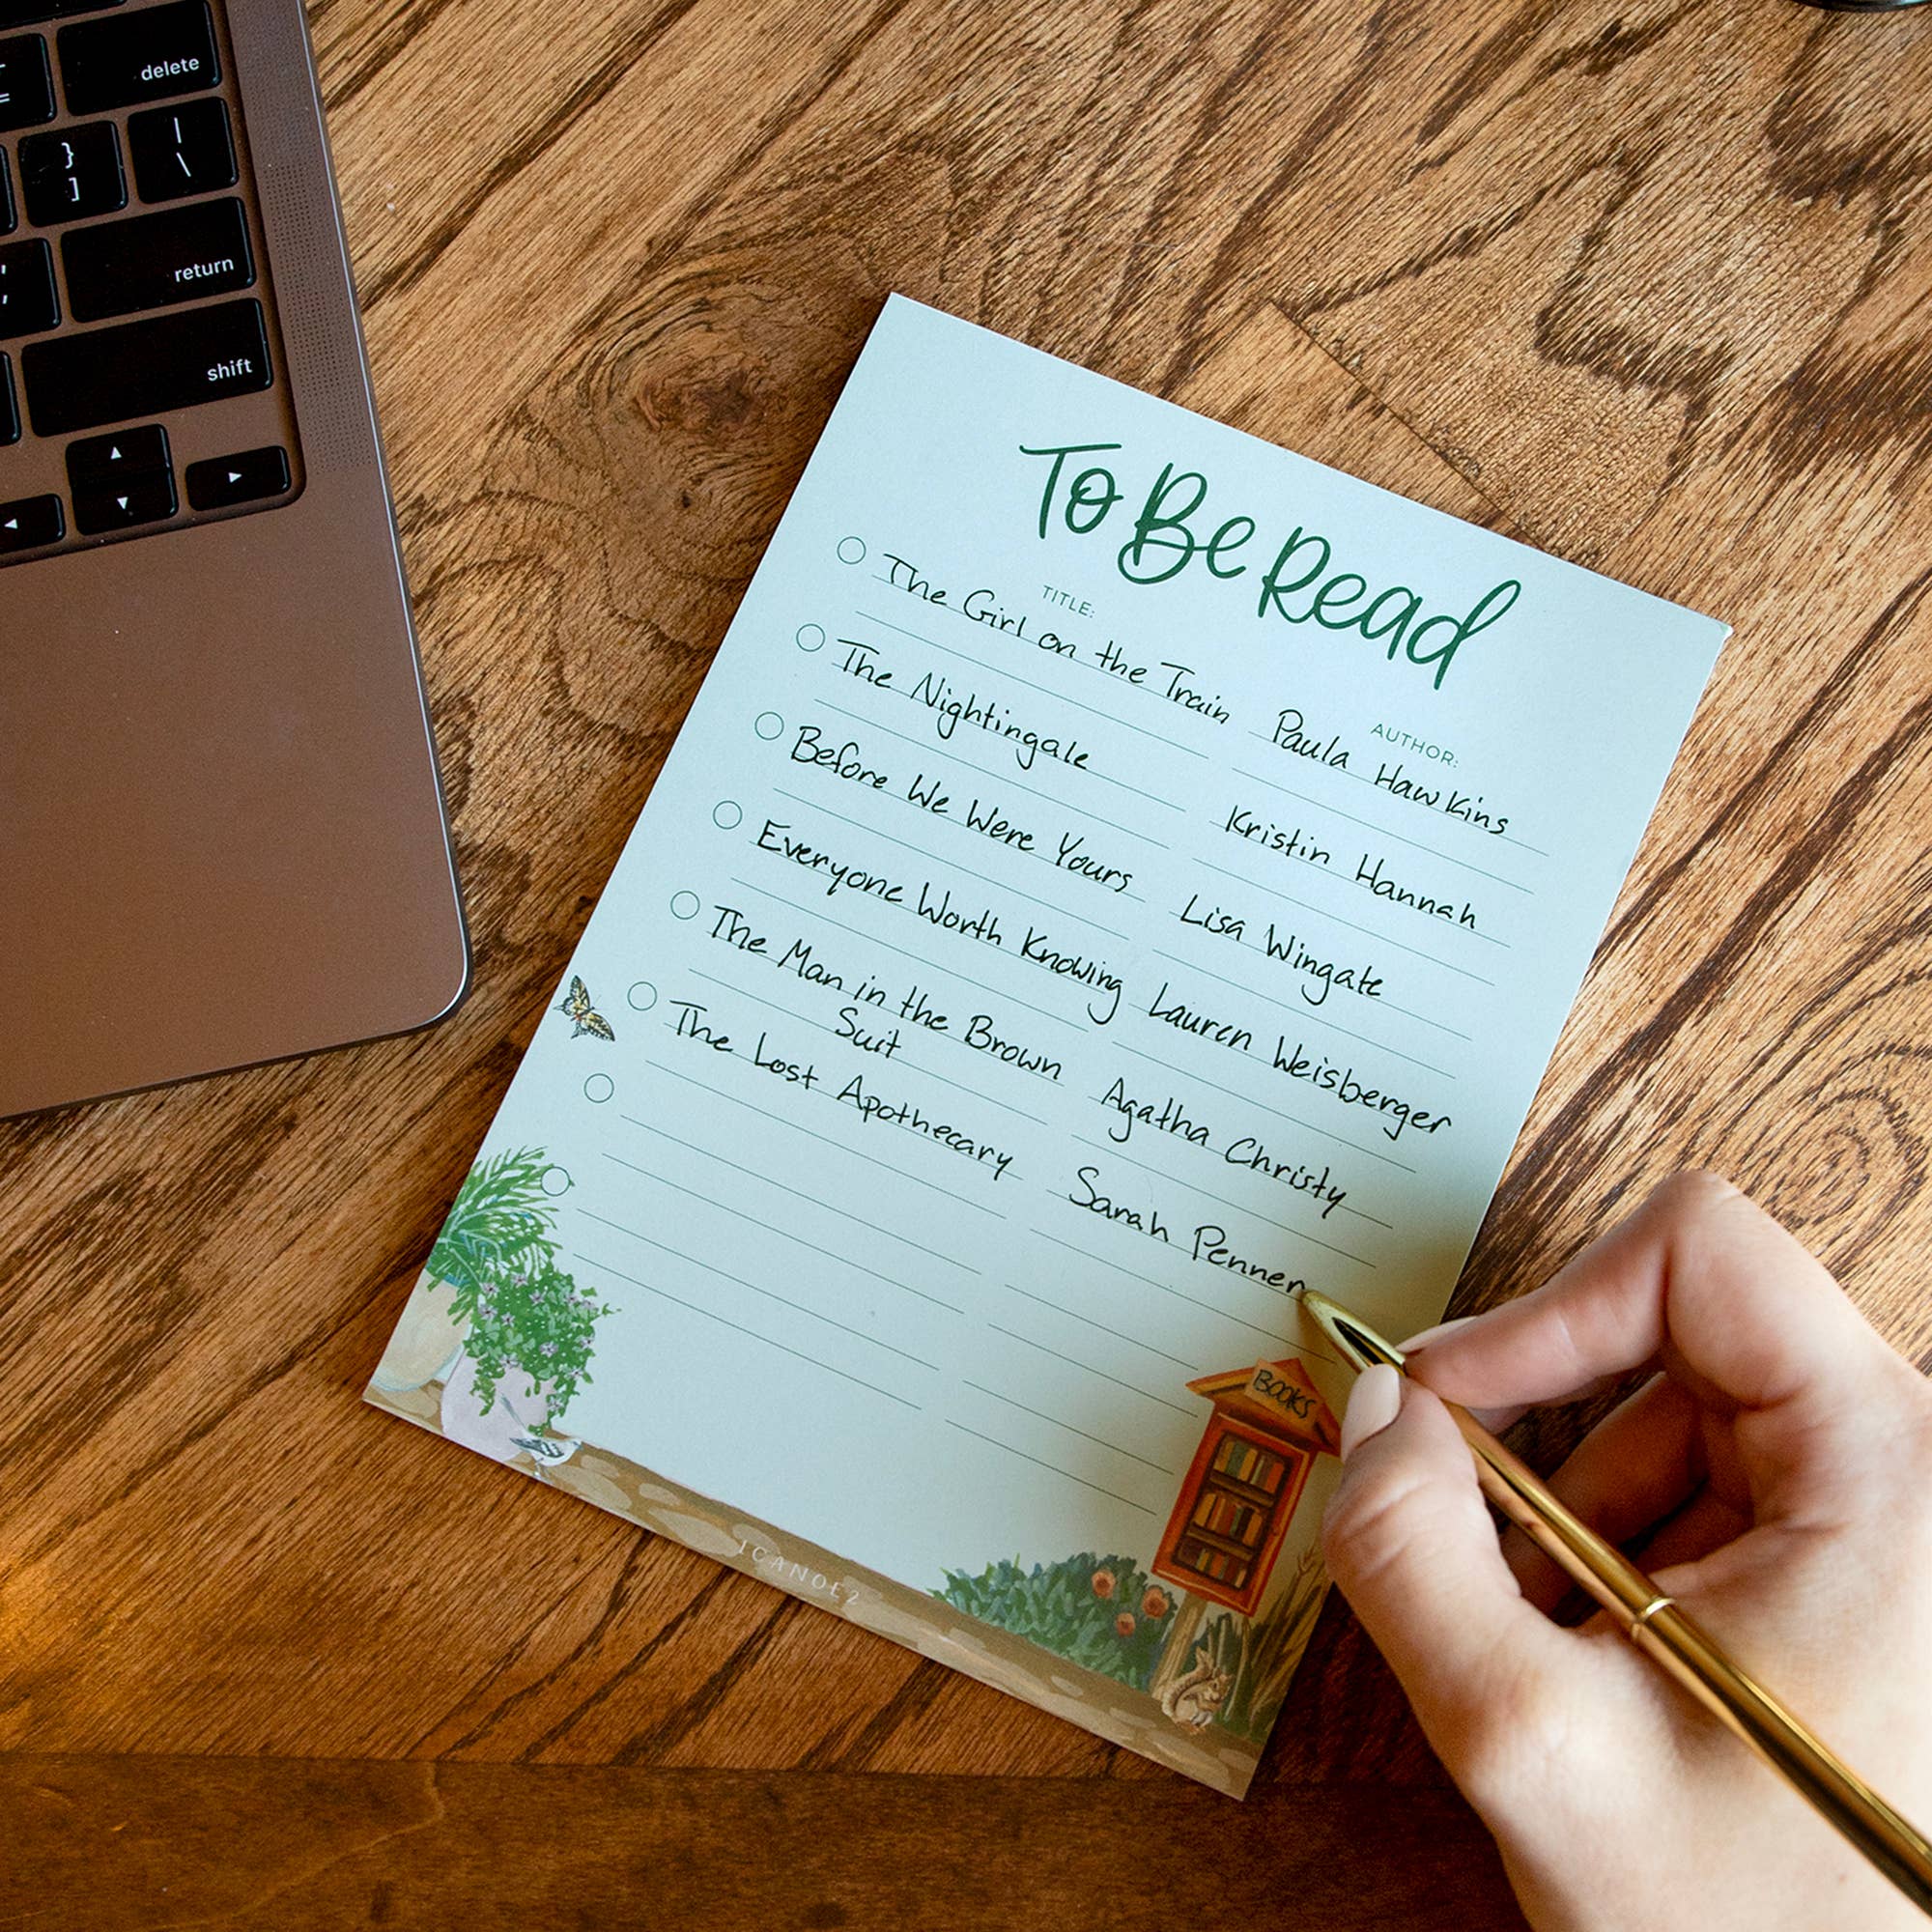 delete
}
]
|
\
return
shift
To Be Read
TITLE:
AUTHOR:
The Girl on the Train Paula Hawkins
The Nightingale Kristin Hannah
Before We Were Yours Lisa Wingate
Everyone Worth Knowing Lauren Weisberger
The Man in the Brown Agatha Christy
Suit
The Lost Apothecary Sarah Penner
BOOKS
1CANOE2